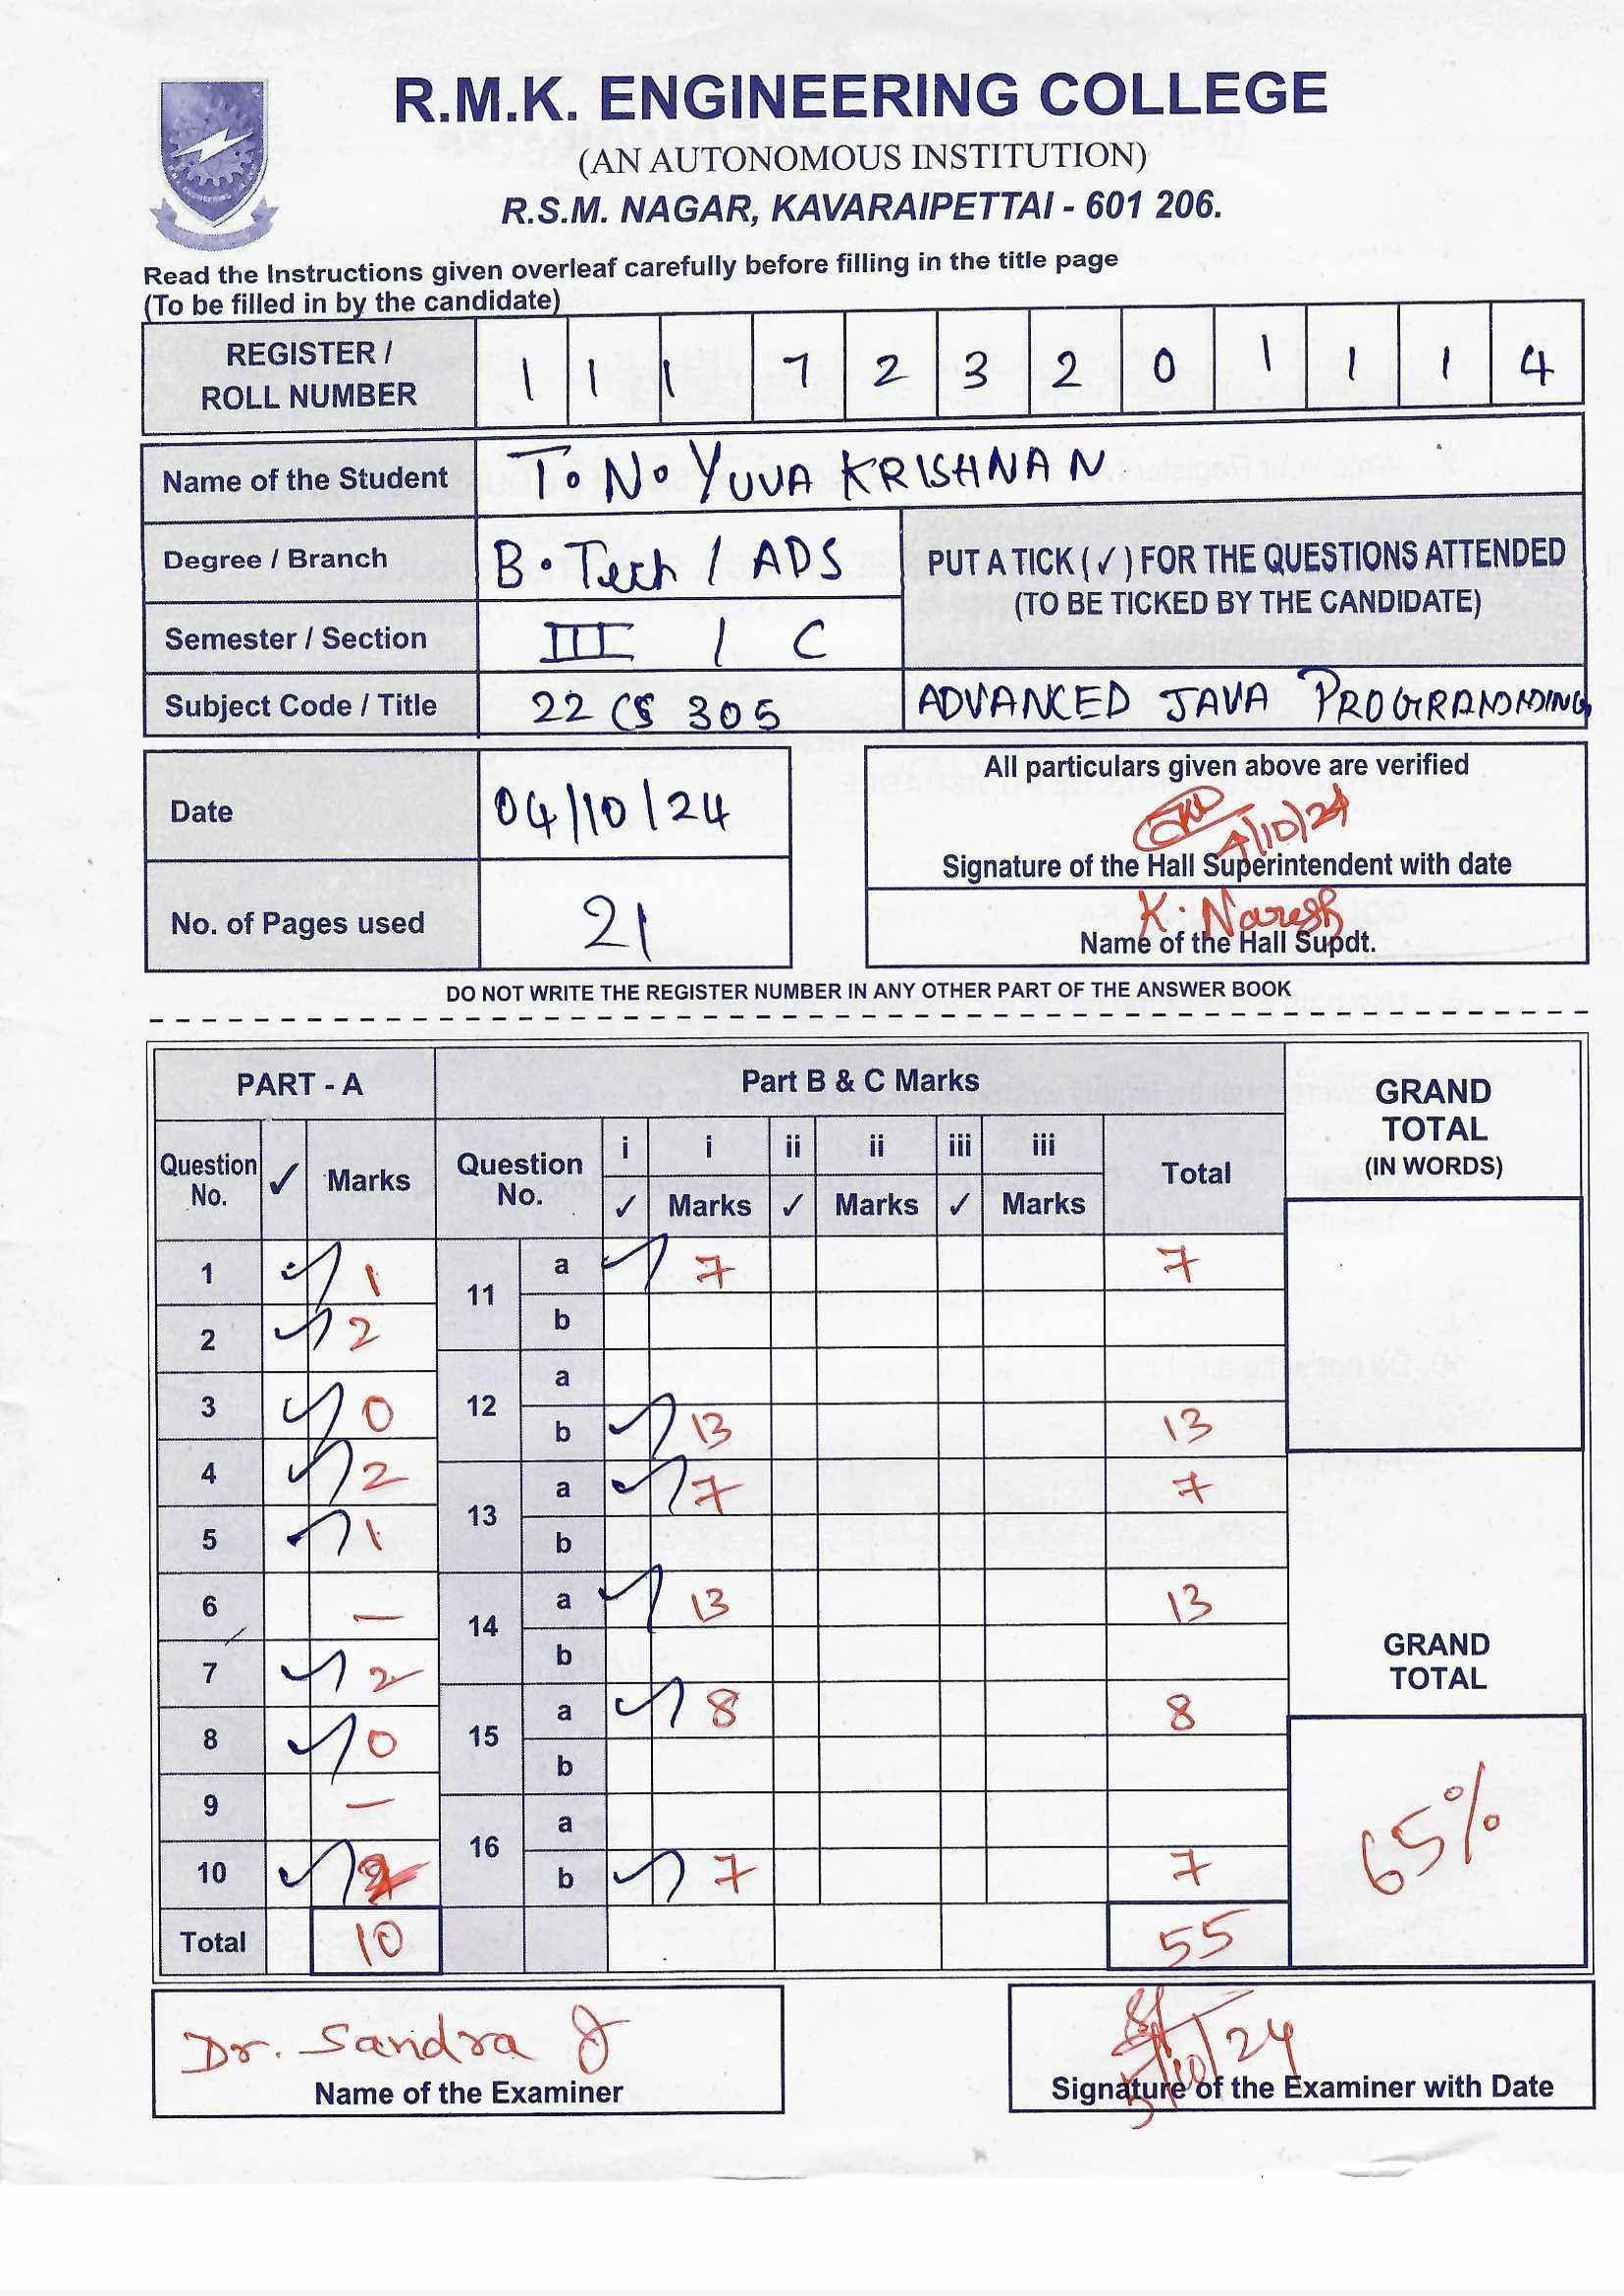 R.M.K. ENGINEERING COLLEGE
(AN AUTONOMOUS INSTITUTION)
R.S.M. NAGAR, KAVARAIPETTAI - 601 206.
Read the Instructions given overleaf carefully before filling in the title page
(To be filled in by the candidate)
REGISTER / ROLL NUMBER 1 1 1 7 2 3 2 0 1 1 1 4
Name of the Student T. N. YUVA KRISHNAN
Degree / Branch B. Tech / ADS
PUT A TICK (✓) FOR THE QUESTIONS ATTENDED
(TO BE TICKED BY THE CANDIDATE)
Semester / Section III / C
Subject Code / Title 22 CS 305 ADVANCED JAVA PROGRAMMING
Date 04/10/24
All particulars given above are verified
4/10/24
Signature of the Hall Superintendent with date
No. of Pages used 21
K. Naresh
Name of the Hall Supdt.
DO NOT WRITE THE REGISTER NUMBER IN ANY OTHER PART OF THE ANSWER BOOK
PART - A Part B & C Marks GRAND TOTAL (IN WORDS)
Question No. ✓ Marks Question No. i ✓ i Marks ii ✓ ii Marks iii ✓ iii Marks Total
1 ✓ 1 11 a ✓ 7 7
2 ✓ 2 b
3 ✓ 0 12 a
b ✓ 13 13
4 ✓ 2 13 a ✓ 7 7
5 ✓ 1 b
6 — 14 a ✓ 13 13
7 ✓ 2 b
GRAND TOTAL
8 ✓ 0 15 a ✓ 8 8
b
9 — 16 a
10 ✓ 2 b ✓ 7 7
65%
Total 10 55
Dr. Sandra J
Name of the Examiner
5/10/24
Signature of the Examiner with Date